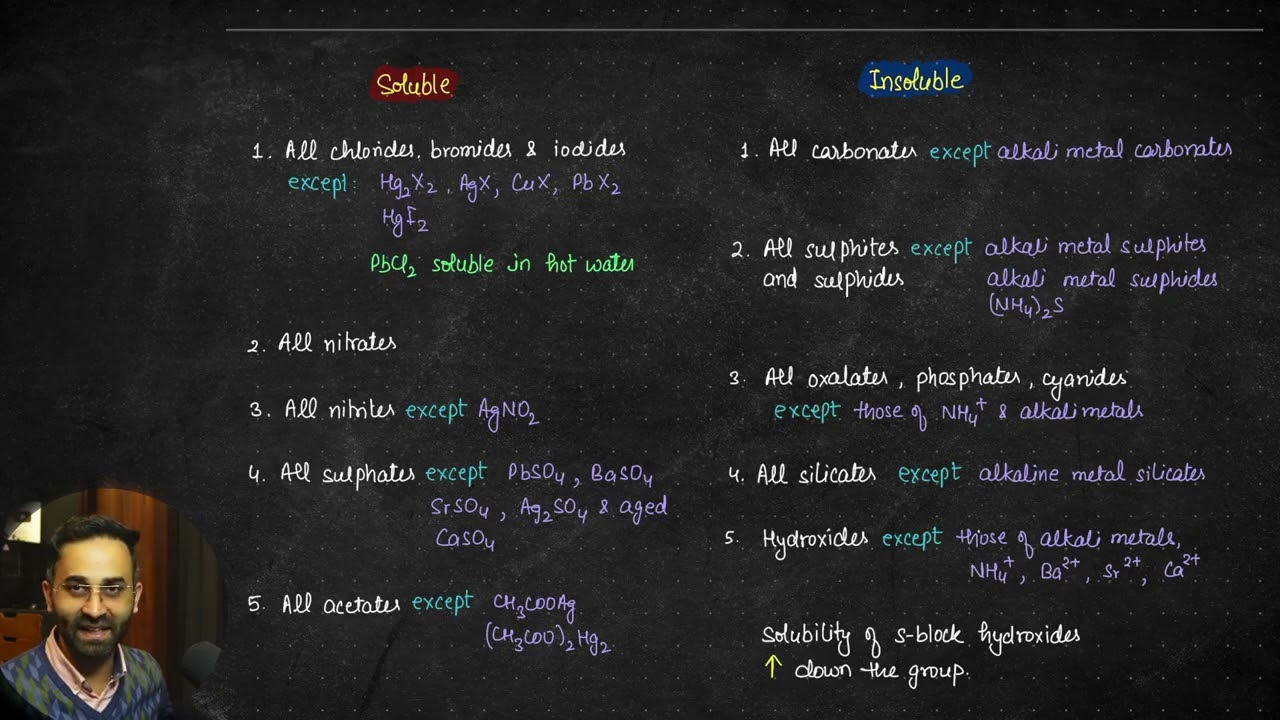 Soluble
1. All chlorides, bromides & iodides
except: Hg₂X₂, AgX, CuX, PbX₂
HgI₂
PbCl₂ soluble in hot water
2. All nitrates
3. All nitrites except AgNO₂
4. All sulphates except PbSO₄, BaSO₄
SrSO₄, Ag₂SO₄ & aged
CaSO₄
5. All acetates except CH₃COOAg
(CH₃COO)₂Hg₂
Insoluble
1. All carbonates except alkali metal carbonates
2. All sulphites except alkali metal sulphites
and sulphides alkali metal sulphides
(NH₄)₂S
3. All oxalates, phosphates, cyanides
except those of NH₄⁺ & alkali metals
4. All silicates except alkaline metal silicates
5. Hydroxides except those of alkali metals,
NH₄⁺, Ba²⁺, Sr²⁺, Ca²⁺
Solubility of s-block hydroxides
↑ down the group.